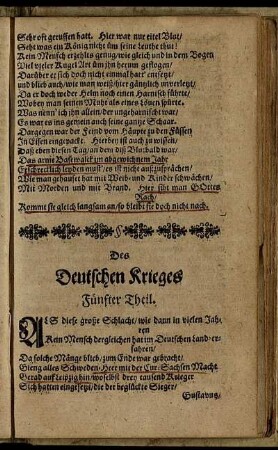 Sehr oft geruffen hatt. Hier war nur eitel Blut/
Seht was ein König nicht üm seine leuthe thut!
Kein Mensch erzehlts genug/wie gleich und in dem Bogen
Viel vieler Kugel Art üm ihn herum geflogen/
Darüber er sich doch nicht einmal hart entsetzt/
und blieb auch/wie man weiß/hier gäntzlich unverletzt/
Da er doch weder Helm noch einen Harnisch führte/
Wobey man seinen Muht als eines Löwen spürte.
Was nenn' ich ihn allein/der ungeharnischt war/
Es war es ins gemein auch seine gantze Schaar.
Dargegen war der Feind vom Häupte zu den Füssen
In Eisen eingepackt. Hierbey ist auch zu wissen/
Daß eben diesen Tag/an dem diß Blutbald war/
Das arme Pasewalck im abgewichnem Jahr
Erschrecklich leyden must'/es ist nicht auszusprächen/
Wie man gehauset hat mit Weib- und Kinder schwächen/
Mit Morden und mit Brand. Hier siht man GOttes
Rach/
Kommt sie gleich langsam an/so bleibt sie doch nicht nach.
Des
Deutschen Krieges
Fünfter Theil.
ALS diese große Schlacht/wie dann in vielen Jah-
ren
Kein Mensch dergleichen hat im Deutschen Land er-
fahren/
Da solche Mänge blieb/zum Ende war gebracht/
Gieng alles Schweden-Heer mit der Cur-Sachsen Macht
Gerad auf Leipzig hin/woselbst drey tausend Krieger
Sich hatten eingesetzt/die der beglückte Sieger/
Gustavus/